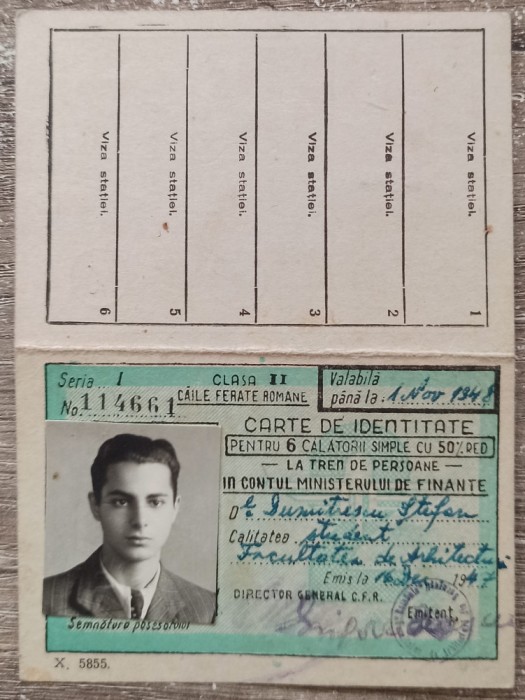 Viza stației.
1
Viza stației.
2
Viza stației.
3
Viza stației.
4
Viza stației.
5
Viza stației.
6
Seria I
No. 114661
CLASA II
CĂILE FERATE ROMANE
Valabilă
până la 1 Nov 1948
CARTE DE IDENTITATE
PENTRU 6 CĂLĂTORII SIMPLE CU 50% RED
— LA TREN DE PERSOANE —
IN CONTUL MINISTERULUI DE FINANTE
D Dumitrescu Ștefan
Calitatea student
Facultatea de Arhitectură
Emis la 194
DIRECTOR GENERAL C.F.R.
Emitent,
Semnătura posesorului
X. 5855.